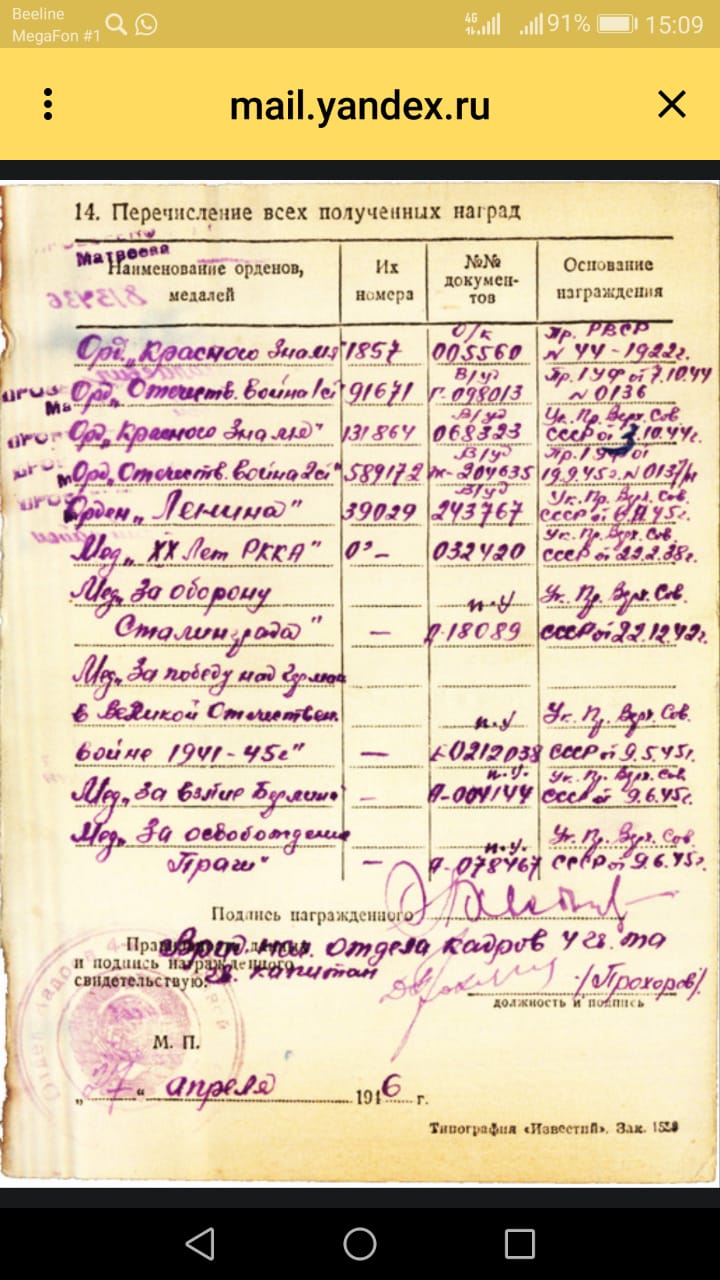 Beeline
MegaFon #1
4G
91%
15:09
mail.yandex.ru
14. Перечисление всех полученных наград
Матвеева
Наименование орденов, медалей
Их номера
№№ документов
Основание награждения
Орд. „Красного Знамя" 1857 о/к 005560 Пр. РВСР N 44-1922г.
Орд. „Отечеств. Война 1й" 91671 В/уд Г-098013 Пр. 1 УФ от 7.10.44 N 0136
Орд. „Красного Знамя" 131864 В/уд 068323 Ук. Пр. Верх. Сов. СССР от 3.10.44г.
Орд. „Отечеств. Война 2й" 589172 В/уд Ж-204635 Пр. 1 19.9.45г. N 0137/н
Орден „Ленина" 39029 В/уд 243767 Ук. Пр. Верх. Сов. СССР от 45г.
Мед. „XX Лет РККА" 032420 Ук. Пр. Верх. Сов. СССР от 22.2.38г.
Мед. „За оборону
Сталинграда" — п.у Д-18089 Ук. Пр. Верх. Сов. СССР от 22.12.42г.
Мед. „За победу над Герман
в Великой Отечествен.
войне 1941-45г" — п.у 0212038 Ук. Пр. Верх. Сов. СССР от 9.5.45г.
Мед. „За взятие Берлина" — п.у. А-004144 Ук. Пр. Верх. Сов. СССР от 9.6.45г.
Мед. „За освобождение
Праги" — п.у. А-078467 Ук. Пр. Верх. Сов. СССР от 9.6.45г.
Подпись награжденного
Правильность данных
и подпись награжденного
свидетельствую:
Врид. нач. отдела кадров 4 гв. та
гв. капитан
/Прохоров/
должность и подпись
М. П.
„27" апреля 1946 г.
Типография «Известий». Зак.